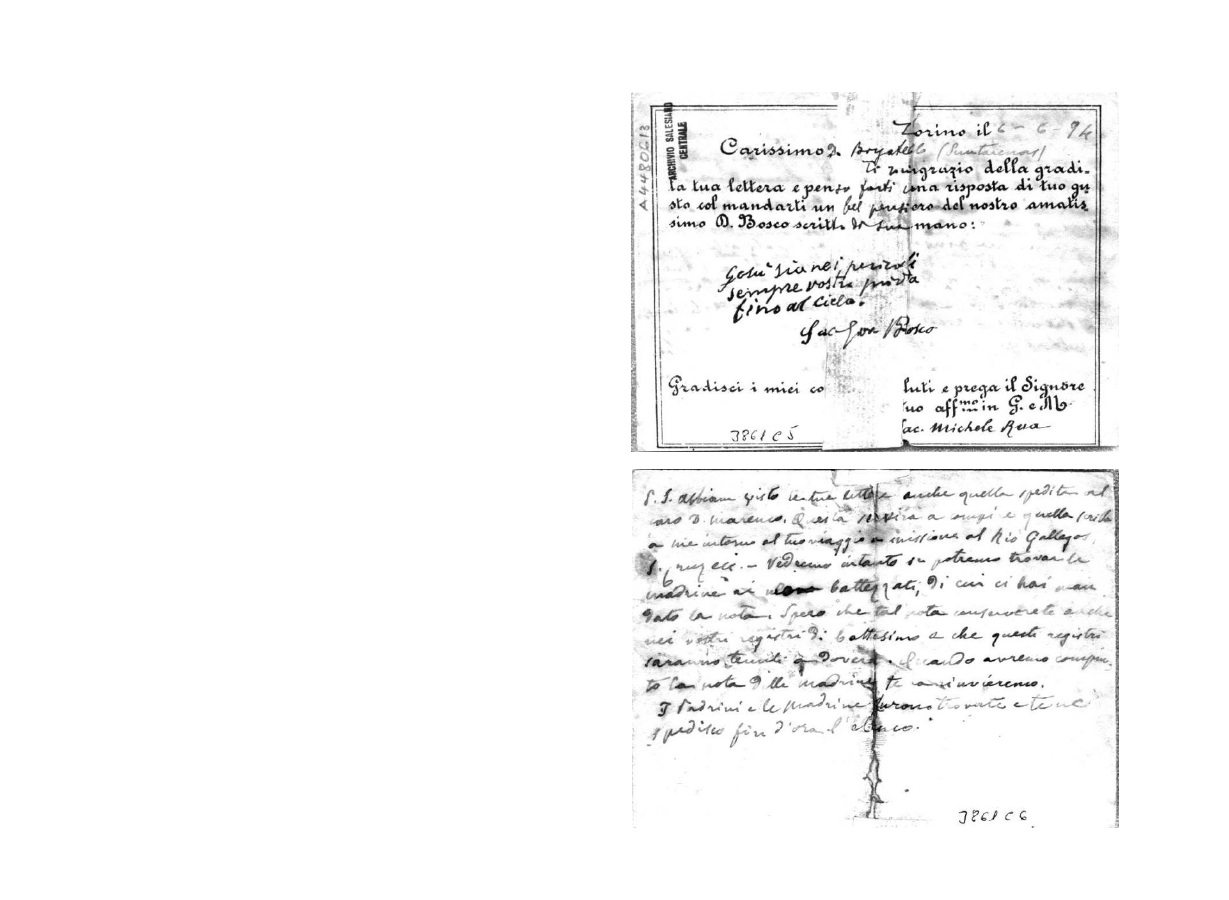 A4480613
ARCHIVIO SALESIANO
CENTRALE
Torino il 6-6-94
Carissimo D. Borgatello (Puntarenas)
Ti ringrazio della gradi-
ta tua lettera e penso farti cosa risposta di tuo gu
sto col mandarti un bel pensiero del nostro amatis
simo D. Bosco scritto di sua mano:
Gesù sia nei pericoli
sempre vostra guida
fino al cielo.
Sac Gio Bosco
Gradisci i miei co luti e prega il Signore
tuo aff.mo in G. e M.
Sac. Michele Rua
3861 C 5
P. S. Abbiam visto le tue lettere anche quella spedita al
caro D. Marenco. Questa servirà a e quella scritta
a me intorno al tuo viaggio e missione al Rio Gallegos,
S. Cruz ecc. - Vedremo intanto se potremo trovar le
madrine ai battezzati, di cui ci hai man
dato la nota. Spero che tal nota conserverete anche
nei vostri registri di battesimo e che questi registri
saranno tenuti a dovere. Quando avremo compiu-
to la nota delle madrine te la rinvieremo.
I Padrini e le Madrine furono trovate e te ne
spedisco fin d'ora l'elenco.
3861 C 6